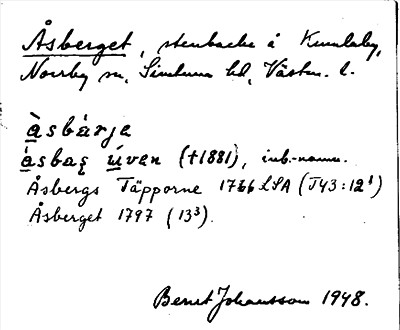 Åsberget, stenbacke å Kumlaby,
Norrby sn, Simtuna hd, Västm. l.
åsbàrje
åsbas Úven (†1881), inb.-namn.
Åsbergs Täpporne 1766 LSA (T43:12¹)
Åsberget 1797 (13³).
Bernt Johansson 1948.